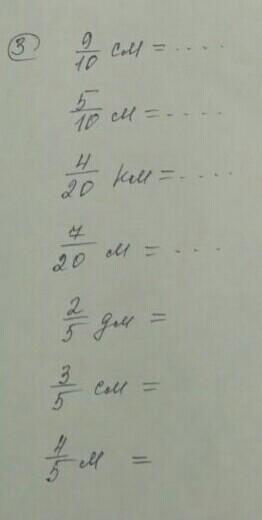 ③ 9/10 см = ....
5/10 м = ....
4/20 км = ....
7/20 м = ...
2/5 дм =
3/5 см =
4/5 м =